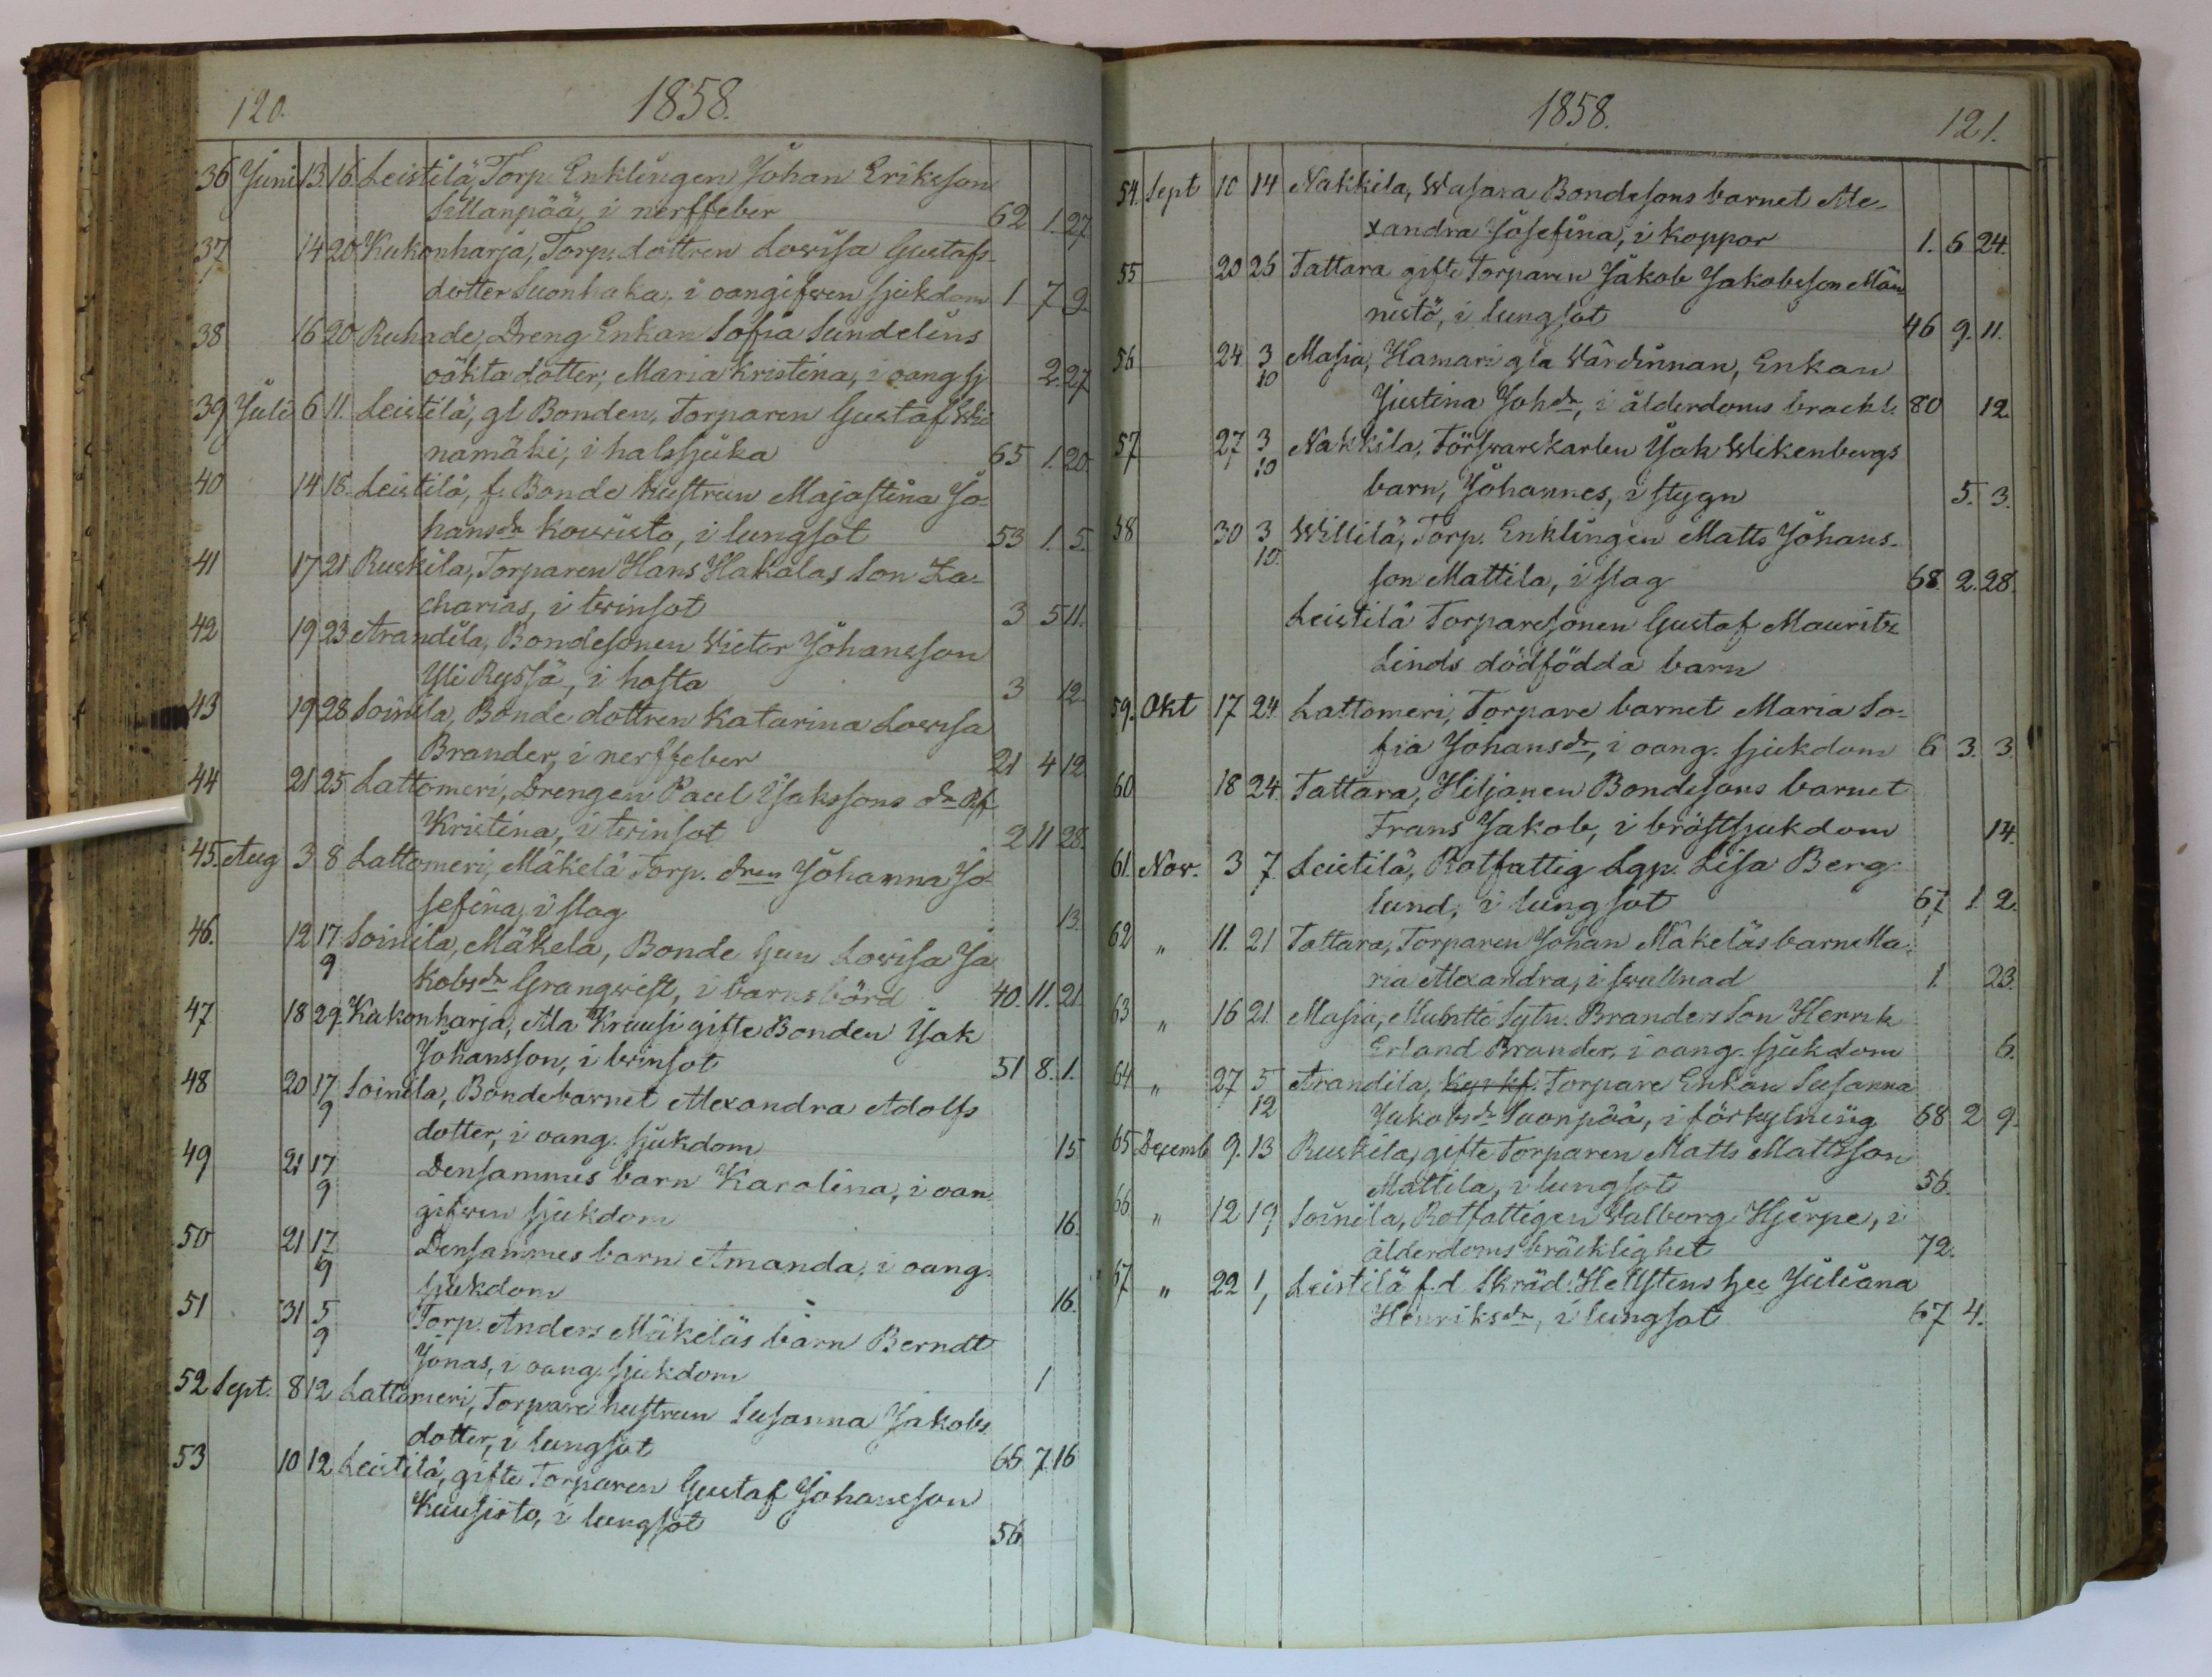 120.
1858.
36 Juni 13 16. Leistilä, Torp. Enklingen Johan Eriksson
Sillanpää, i nerffeber 62 1. 27
37 14 20 Kukonharja, Torp. dottren Lovisa Gustafs-
dotter Suonhaka, i oangifven sjukdom 1 7 9.
38 16 20 Ruhade, Dreng Enkan Sofia Sundelins
oäkta dotter, Maria Kristina, i oang sj 2. 27
39 Juli 6 11. Leistilä, gl Bonden, Torparen Gustaf Wii
namäki, i halssjuka 65 1. 20.
40 14 18. Leistilä, f. Bonde hustrun Majastina Jo-
hansdr Kowisto, i lungsot 53 1. 5.
41 17 21 Ruskila, Torparen Hans Hakalas son Za-
charias, i twinsot 3 5 11.
42 19 23 Arandila, Bondesonen Victor Johansson
Yli Ryssä, i hosta 3 12.
43 19 28 Soinila, Bonde dottren Katarina Lovisa
Brander, i nerffeber 21 4 12
44 21 25 Lattomeri, Drengen Paul Isakssons dr
Kristina, i twinsot 2 11 28.
45. Aug 3 8 Lattomeri, Mäkelä Torp. dren Johanna Jo-
sefina, i slag 13.
46. 12 17/9 Soinila, Mäkelä, Bonde hun Lovisa Ja
kobsdr Grangwist, i barnsbörd 40. 11. 21.
47 18 29. Kukonharja, Ala Kruusi gifte Bonden Isak
Johansson, i twinsot 51 8. 1.
48 20 17/9 Soinila, Bondebarnet Alexandra Adolfs
dotter, i oang. sjukdom 15
49 21 17/9 Densammes barn Karolina, i oan
gifven sjukdom 16.
50 21 17/9 Densammes barn Amanda, i oang.
sjukdom 16.
51 31 5/9 Torp. Anders Mäkeläs barn Berndt
Jonas, i oang. sjukdom 1
52 Sept. 8 12 Lattomeri, Torpare hustrun Susanna Jakobs
dotter, i lungsot 65 7 16
53 10 12 Leistilä, gifte Torparen Gustaf Johansson
Kuusisto, i lungsot 56.
1858.
121.
54. Sept 10 14 Nakkila, Wasara Bondesons barnet Ale-
xandra Josefina, i koppor 1. 6 24.
55 20 25 Tattara gifte Torparen Jakob Jakobsson Män
nistö, i lungsot 46 9. 11.
56 24 3/10 Masia, Hamari gla Wärdinnan, Enkan
Justina Johdr, i ålderdoms brackl. 80 12.
57 27 3/10 Nakkila, Förswarskarlen Isak Wikenbergs
barn, Johannes, i stygn 5. 3.
58 30 3/10. Willilä, Torp. Enklingen Matts Johans-
son Mattila, i slag 68. 2. 28.
Leistilä Torparesonen Gustaf Mauritz
Linds dödfödda barn
59. Okt 17 24. Lattomeri, Torpare barnet Maria So-
fia Johansdr, i oang. sjukdom 6 3. 3.
60 18 24. Tattara, Hiljanen Bondesons barnet
Frans Jakob, i bröstsjukdom 14.
61. Nov. 3 7. Leistilä, Rotfattig Lgp. Lisa Berg-
lund, i lungsot 67 1. 2.
62 " 11. 21 Tattara, Torparen Johan Mäkeläs barn Ma-
ria Alexandra, i swullnad 1. 23.
63 " 16 21. Masia, Sytn. Branders Son Henrik
Erland Brander, i oang. sjukdom 6.
64 " 27 5/12 Arandila, Torpare Enkan Susanna
Jakobsdr Suonpää, i förkylning 68 2 9.
65 Decemb 9. 13 Ruskila, gifte Torparen Matts Mattsson
Mattila, i lungsot 56.
66 " 12 19 Soinila, Rotfattigen Walborg Hjerpe, i
ålderdoms bräcklighet 72.
67 " 22 1/1 Leistilä f.d. Skräd. Hellstens hu Juliana
Henriksdr, i lungsot 67 4.